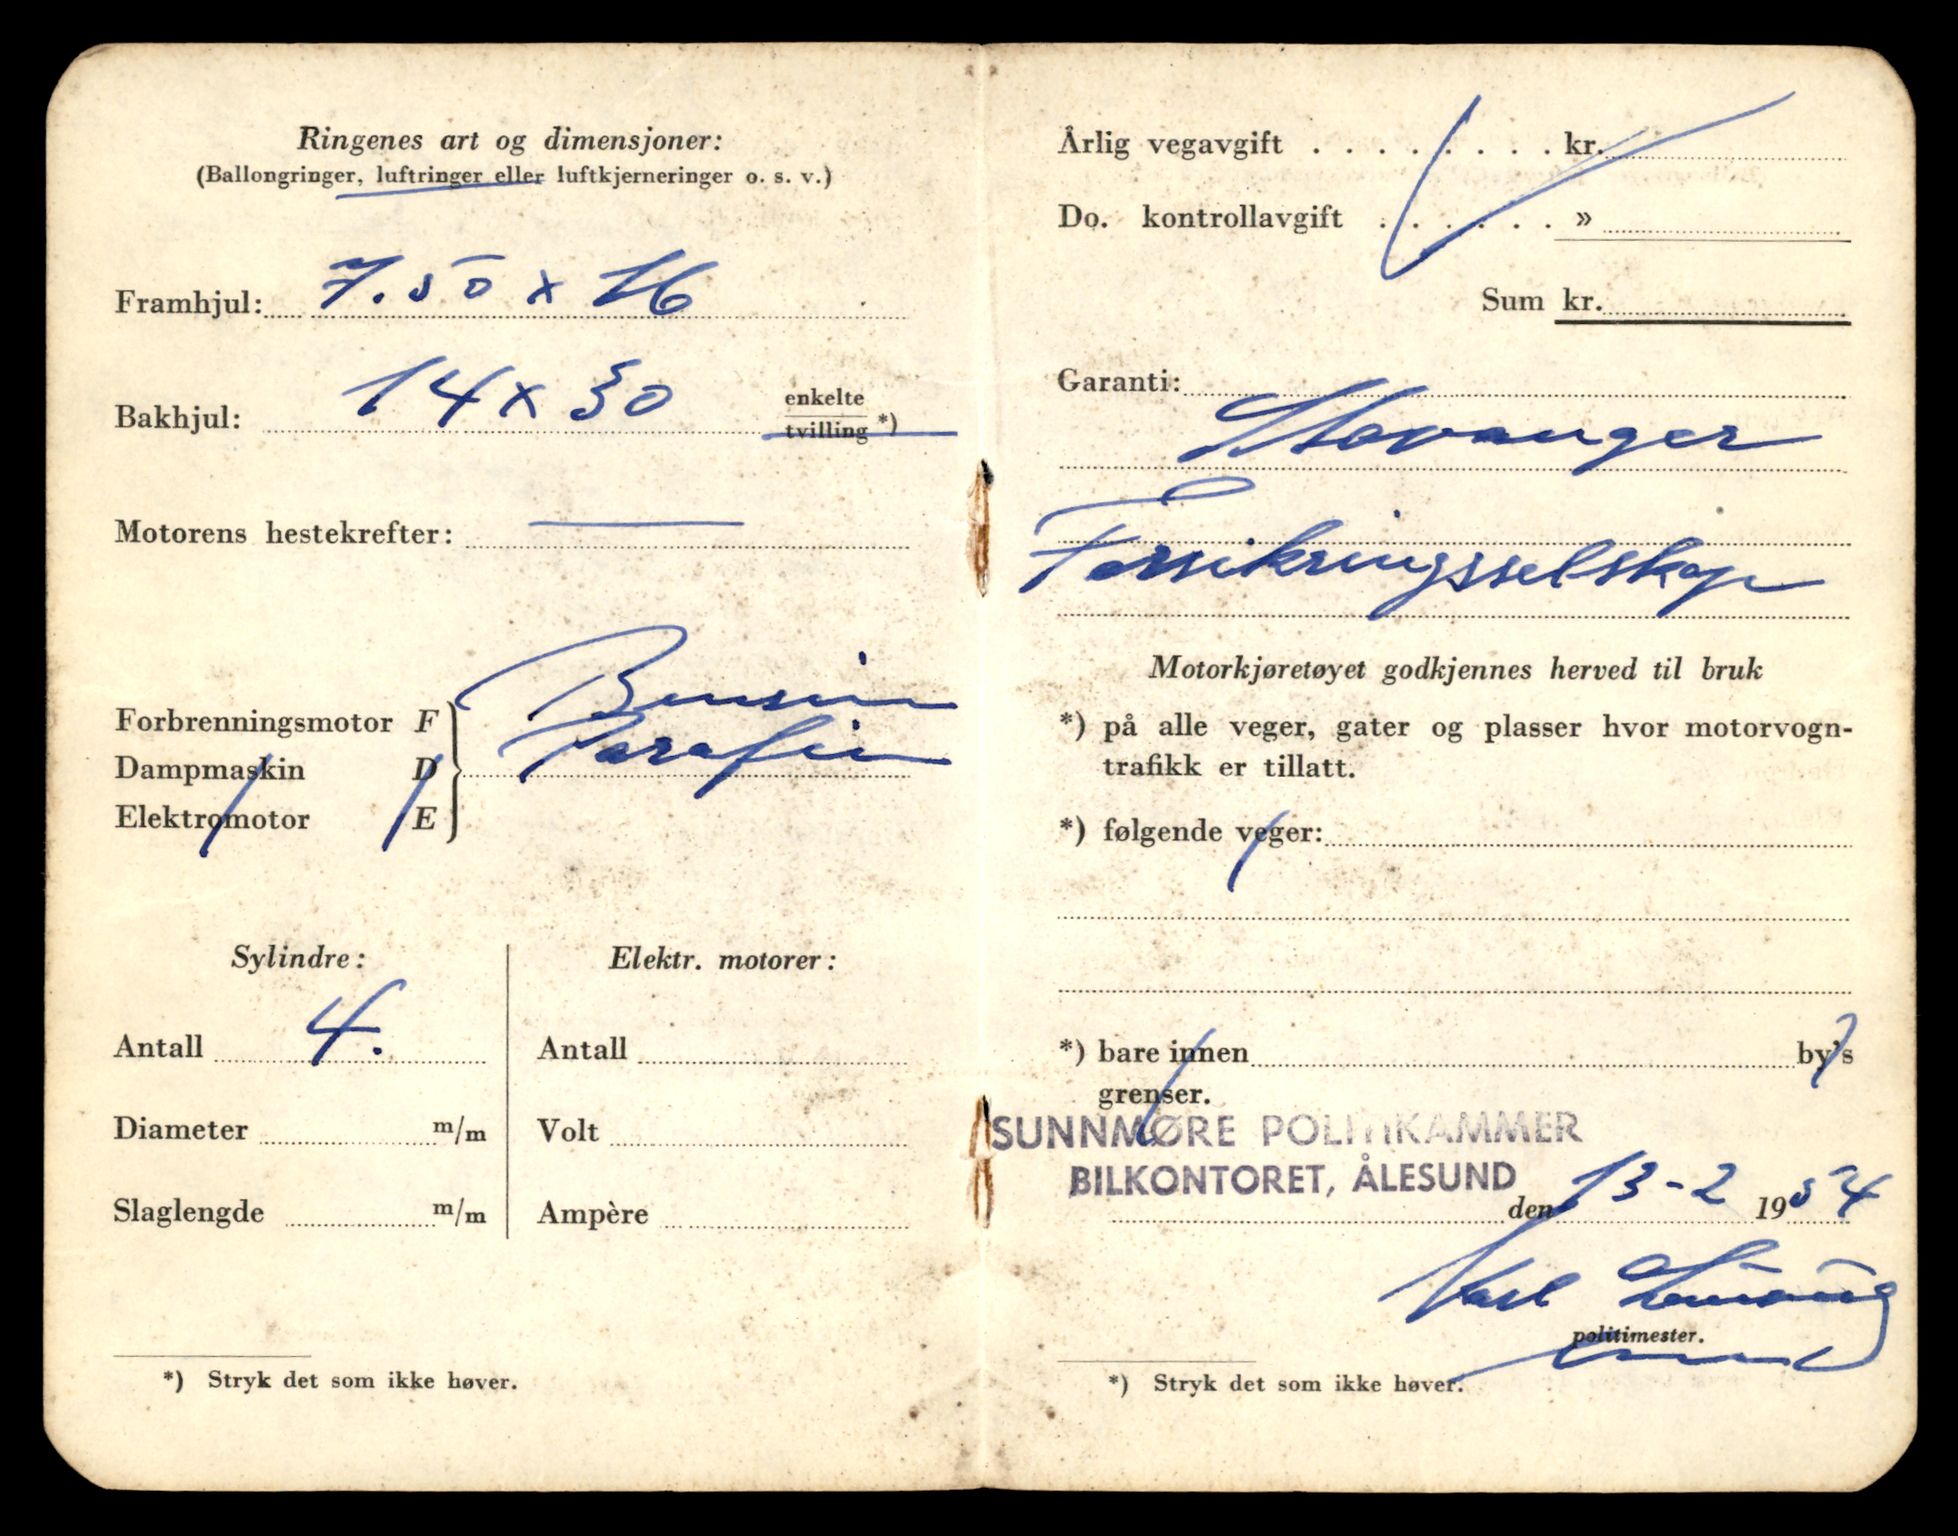 Ringenes art og dimensjoner:
(Ballongringer, luftringer eller luftkjerneringer o. s. v.)
Framhjul: 7.50 x 16
Bakhjul: 14 x 30 enkelte
tvilling *)
Motorens hestekrefter: —
Bensin
Forbrenningsmotor F
Parafin
Dampmaskin D
Elektromotor E
Sylindre:
Antall 4.
Diameter m/m
Slaglengde m/m
Elektr. motorer:
Antall
Volt
Ampère
*) Stryk det som ikke høver.
Årlig vegavgift . . . . . . . . kr.
Do. kontrollavgift . . . . . . »
Sum kr.
Garanti:
Stavanger
Forsikringsselskap
Motorkjøretøyet godkjennes herved til bruk
*) på alle veger, gater og plasser hvor motorvogn-
trafikk er tillatt.
*) følgende veger:
*) bare innen by's
grenser.
SUNNMØRE POLITIKAMMER
BILKONTORET, ÅLESUND
den 13-2 1954
Karl
politimester.
*) Stryk det som ikke høver.